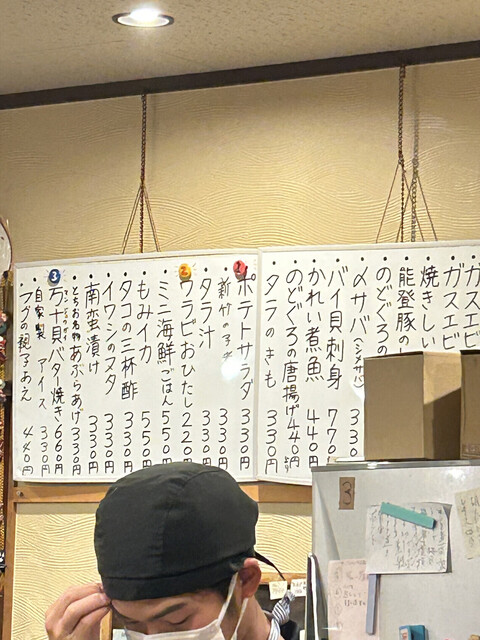 ガスエビ
ガスエビ
焼きしい
能登豚の
のどぐろの
〆サバ(シメサバ) 330
バイ貝刺身 770
かれい煮魚 440円
のどぐろの唐揚げ 440円より
タラのきも 330円
1
ポテトサラダ 330円
新竹の子 330円
タラ汁 330円
2
ワラビおひたし 220円
ミニ海鮮ごはん 550円
もみイカ 550円
タコの三杯酢 330円
イワシのヌタ 330円
南蛮漬け 330円
とちお名物あぶらあげ 330円
3
万十貝バター焼き 660円
自家製アイス 330円
フグの親子あえ 440円
3